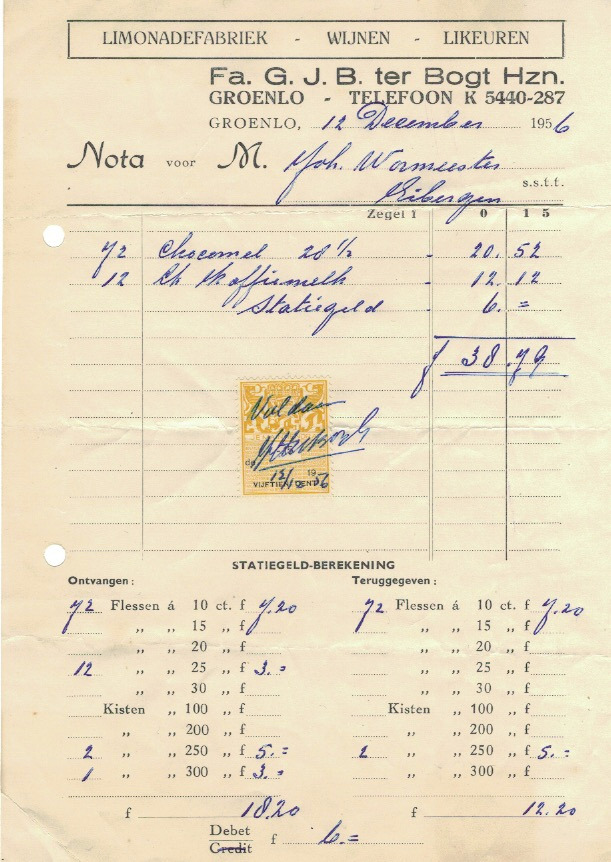 LIMONADEFABRIEK - WIJNEN - LIKEUREN
Fa. G. J. B. ter Bogt Hzn.
GROENLO - TELEFOON K 5440-287
GROENLO, 12 December 1956
Nota voor M. Joh. Wormeester
Eibergen s.s.t.t.
Zegel f 0 15
72 Chocomel 28 1/2 - 20. 52
12 Koffiemelk - 12. 12
Statiegeld - 6. =
f 38.79
Voldaan
de
12/12 1956
VIJFTIEN CENT
STATIEGELD-BEREKENING
Ontvangen: Teruggegeven:
72 Flessen á 10 ct. f 7.20 72 Flessen á 10 ct. f 7.20
„ „ 15 „ f „ „ 15 „ f
„ „ 20 „ f „ „ 20 „ f
12 „ „ 25 „ f 3.= „ „ 25 „ f
„ „ 30 „ f „ „ 30 „ f
Kisten „ 100 „ f Kisten „ 100 „ f
„ „ 200 „ f „ „ 200 „ f
2 „ „ 250 „ f 5.= 2 „ „ 250 „ f 5.=
1 „ „ 300 „ f 3.= „ „ 300 „ f
f 18.20 f 12.20
Debet
Credit f 6.=